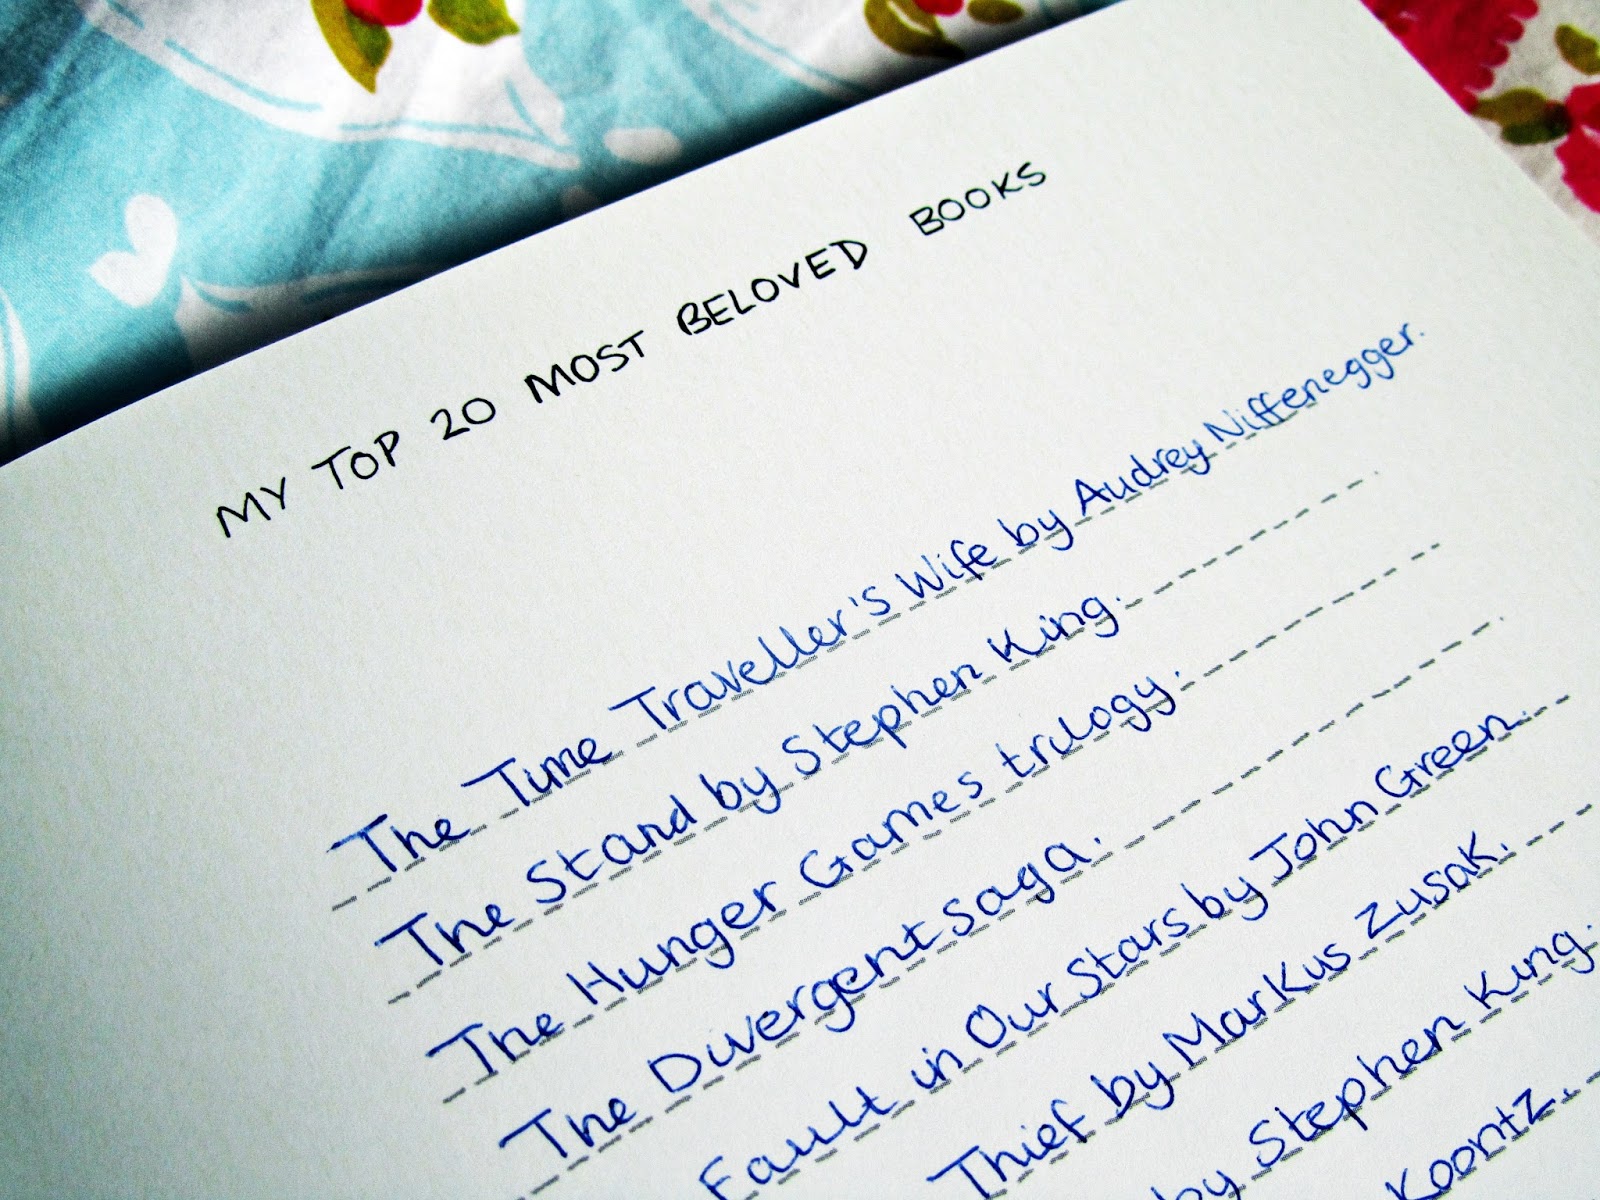 MY TOP 20 MOST BELOVED BOOKS
The Time Traveller's Wife by Audrey Niffenegger.
The Stand by Stephen King.
The Hunger Games trilogy.
The Divergent saga.
Fault in Our Stars by John Green.
Thief by Markus Zusak.
by Stephen King.
Koontz.